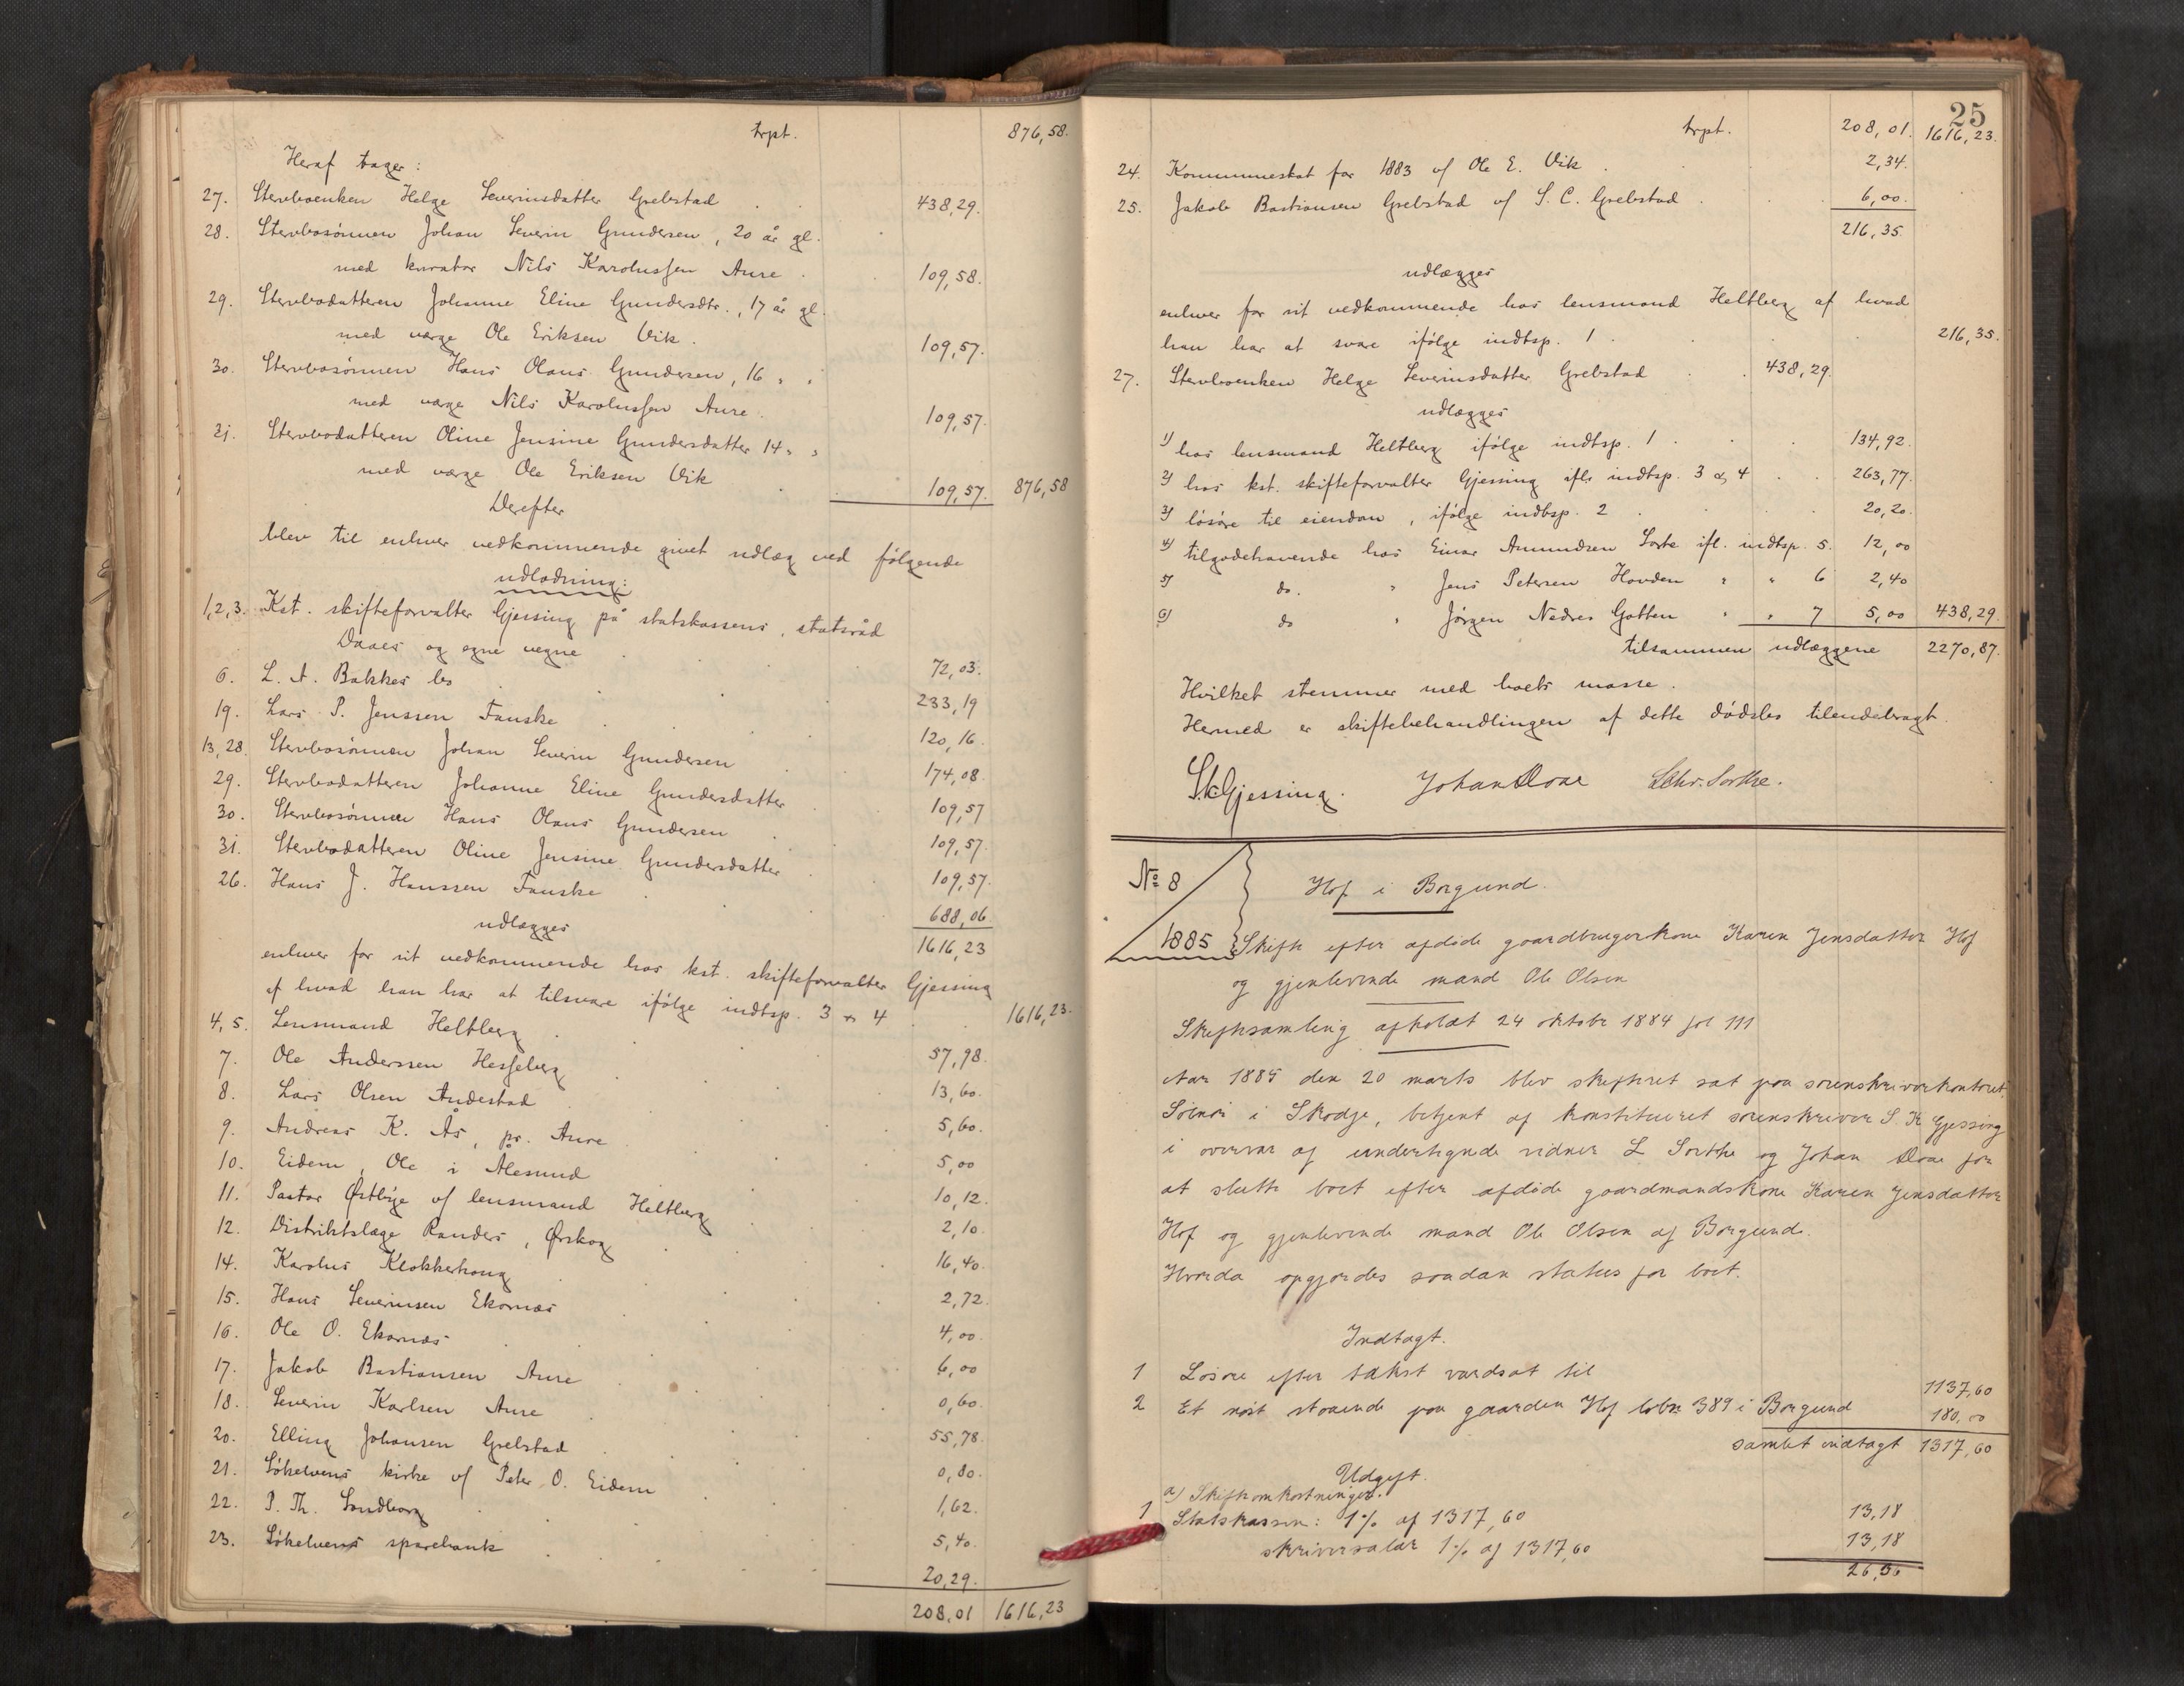 trpt. 876,58.
Heraf tager:
27. Stervboenken Helge Severinsdatter Grebstad 438,29.
28. Stervbosönnen Johan Severin Gundersen, 20 år gl.
med kurator Nils Karolussen Aure 109,58.
29. Stervbodatteren Johanne Eline Gundersdtr., 17 år gl.
med værge Ole Eriksen Vik. 109,57.
30. Stervbosönnen Hans Olaus Gundersen, 16 " "
med værge Nils Karolussen Aure. 109,57.
31. Stervbodatteren Oline Jensine Gundersdatter 14 " "
med værge Ole Eriksen Vik 109,57. 876,58
Derefter
blev til enhver vedkommende givet udlæg ved fölgende
udlodning:
1,2,3. Kst. skifteforvalter Gjessing på statskassens, statsråd
Daaes og egne vegne 72,03.
6. L. A. Bakkes bo 233,19
19. Lars P. Jenssen Fauske 120,16.
13,28. Stervbosönnen Johan Severin Gundersen 174,08.
29. Stervbodatteren Johanne Eline Gundersdatter 109,57
30. Stervbosönnen Hans Olaus Gundersen 109,57.
31. Stervbodatteren Oline Jensine Gundersdatter 109,57.
26. Hans J. Hanssen Fauske 688,06
udlægges 1616,23
enhver for sit vedkommende hos kst. skifteforvalter Gjessing
af hvad han har at tilsvare ifölge indtsp. 3 & 4 1616,23.
4,5. Lensmand Heltberg 57,98.
7. Ole Anderssen Hesseberg 13,60.
8. Lars Olsen Andestad 5,60.
9. Andreas K. Ås, pr. Aure 5,00
10. Eidem, Ole i Ålesund 10,12.
11. Pastor Østbye v/ lensmand Heltberg 2,10.
12. Distriktslæge Randers, Ørskog 16,40.
14. Karolus Klokkerhoug 2,72.
15. Hans Severinsen Ekornæs 4,00.
16. Ole O. Ekornæs 6,00
17. Jakob Bastiansen Aure 0,60.
18. Severin Karlsen Aure 55,78.
20. Elling Johansen Grebstad 0,80.
21. Sökelvens kirke v/ Peter O. Eidem 1,62.
22. P. Th. Sandborg 5,40.
23. Sökelvens sparebank 20,29.
208,01 1616,23
25
trpt. 208,01. 1616,23.
24. Kommuneskat for 1883 v/ Ole E. Vik 2,34.
25. Jakob Bastiansen Grebstad v/ S. C. Grebstad 6,00.
216,35
udlægges
enhver for sit vedkommende hos lensmand Heltberg af hvad
han har at svare ifölge indtsp. 1 216,35.
27. Stervboenken Helge Severinsdatter Grebstad 438,29.
udlægges
1) hos lensmand Heltberg ifölge indtsp. 1 134,92.
2) hos kst. skifteforvalter Gjessing ifl. indtsp. 3 & 4 263,77.
3) lösöre til eiendom, ifölge indtsp. 2 20,20.
4) tilgodehavende hos Einar Amundsen Sorte ifl. indtsp. 5. 12,00
5) do. " Jens Petersen Hovden " " 6 2,40
6) do " Jørgen Nedres Gotten " " 7 5,00 438,29.
tilsammen udlæggene 2270,87.
Hvilket stemmer med boets masse.
Hermed er skiftebehandlingen af dette dödsbo tilendebragt.
S.K. Gjessing. Johan Doae LChr. Sorthe.
No 8 Hof i Borgund.
1885 Skifte efter afdöde gaardbrugerkone Karen Jensdatter Hof
og gjenlevende mand Ole Olsen
Skiftesamling afholdt 24 oktober 1884 fol 111
Aar 1885 den 20 marts blev skifteret sat paa sorenskriverkontoret
Solnör i Skodje, betjent af konstitueret sorenskriver S. K Gjessing
i overvær af undertegnede vidner L Sorthe og Johan Doae for
at slutte boet efter afdöde gaardmandskone Karen Jensdatter
Hof og gjenlevende mand Ole Olsen af Borgund.
Hvorda opgjordes saadan status for boet.
Indtægt.
1 Losöre efter takst værdsat til 1137,60
2 Et nöst staaende paa gaarden Hof lobn 389 i Borgund 180,00
samlet indtægt 1317,60
Udgift.
a) Skifteomkostninger.
1 Statskassen: 1% af 1317,60 13,18
skriversalær 1% af 1317,60 13,18
26,36